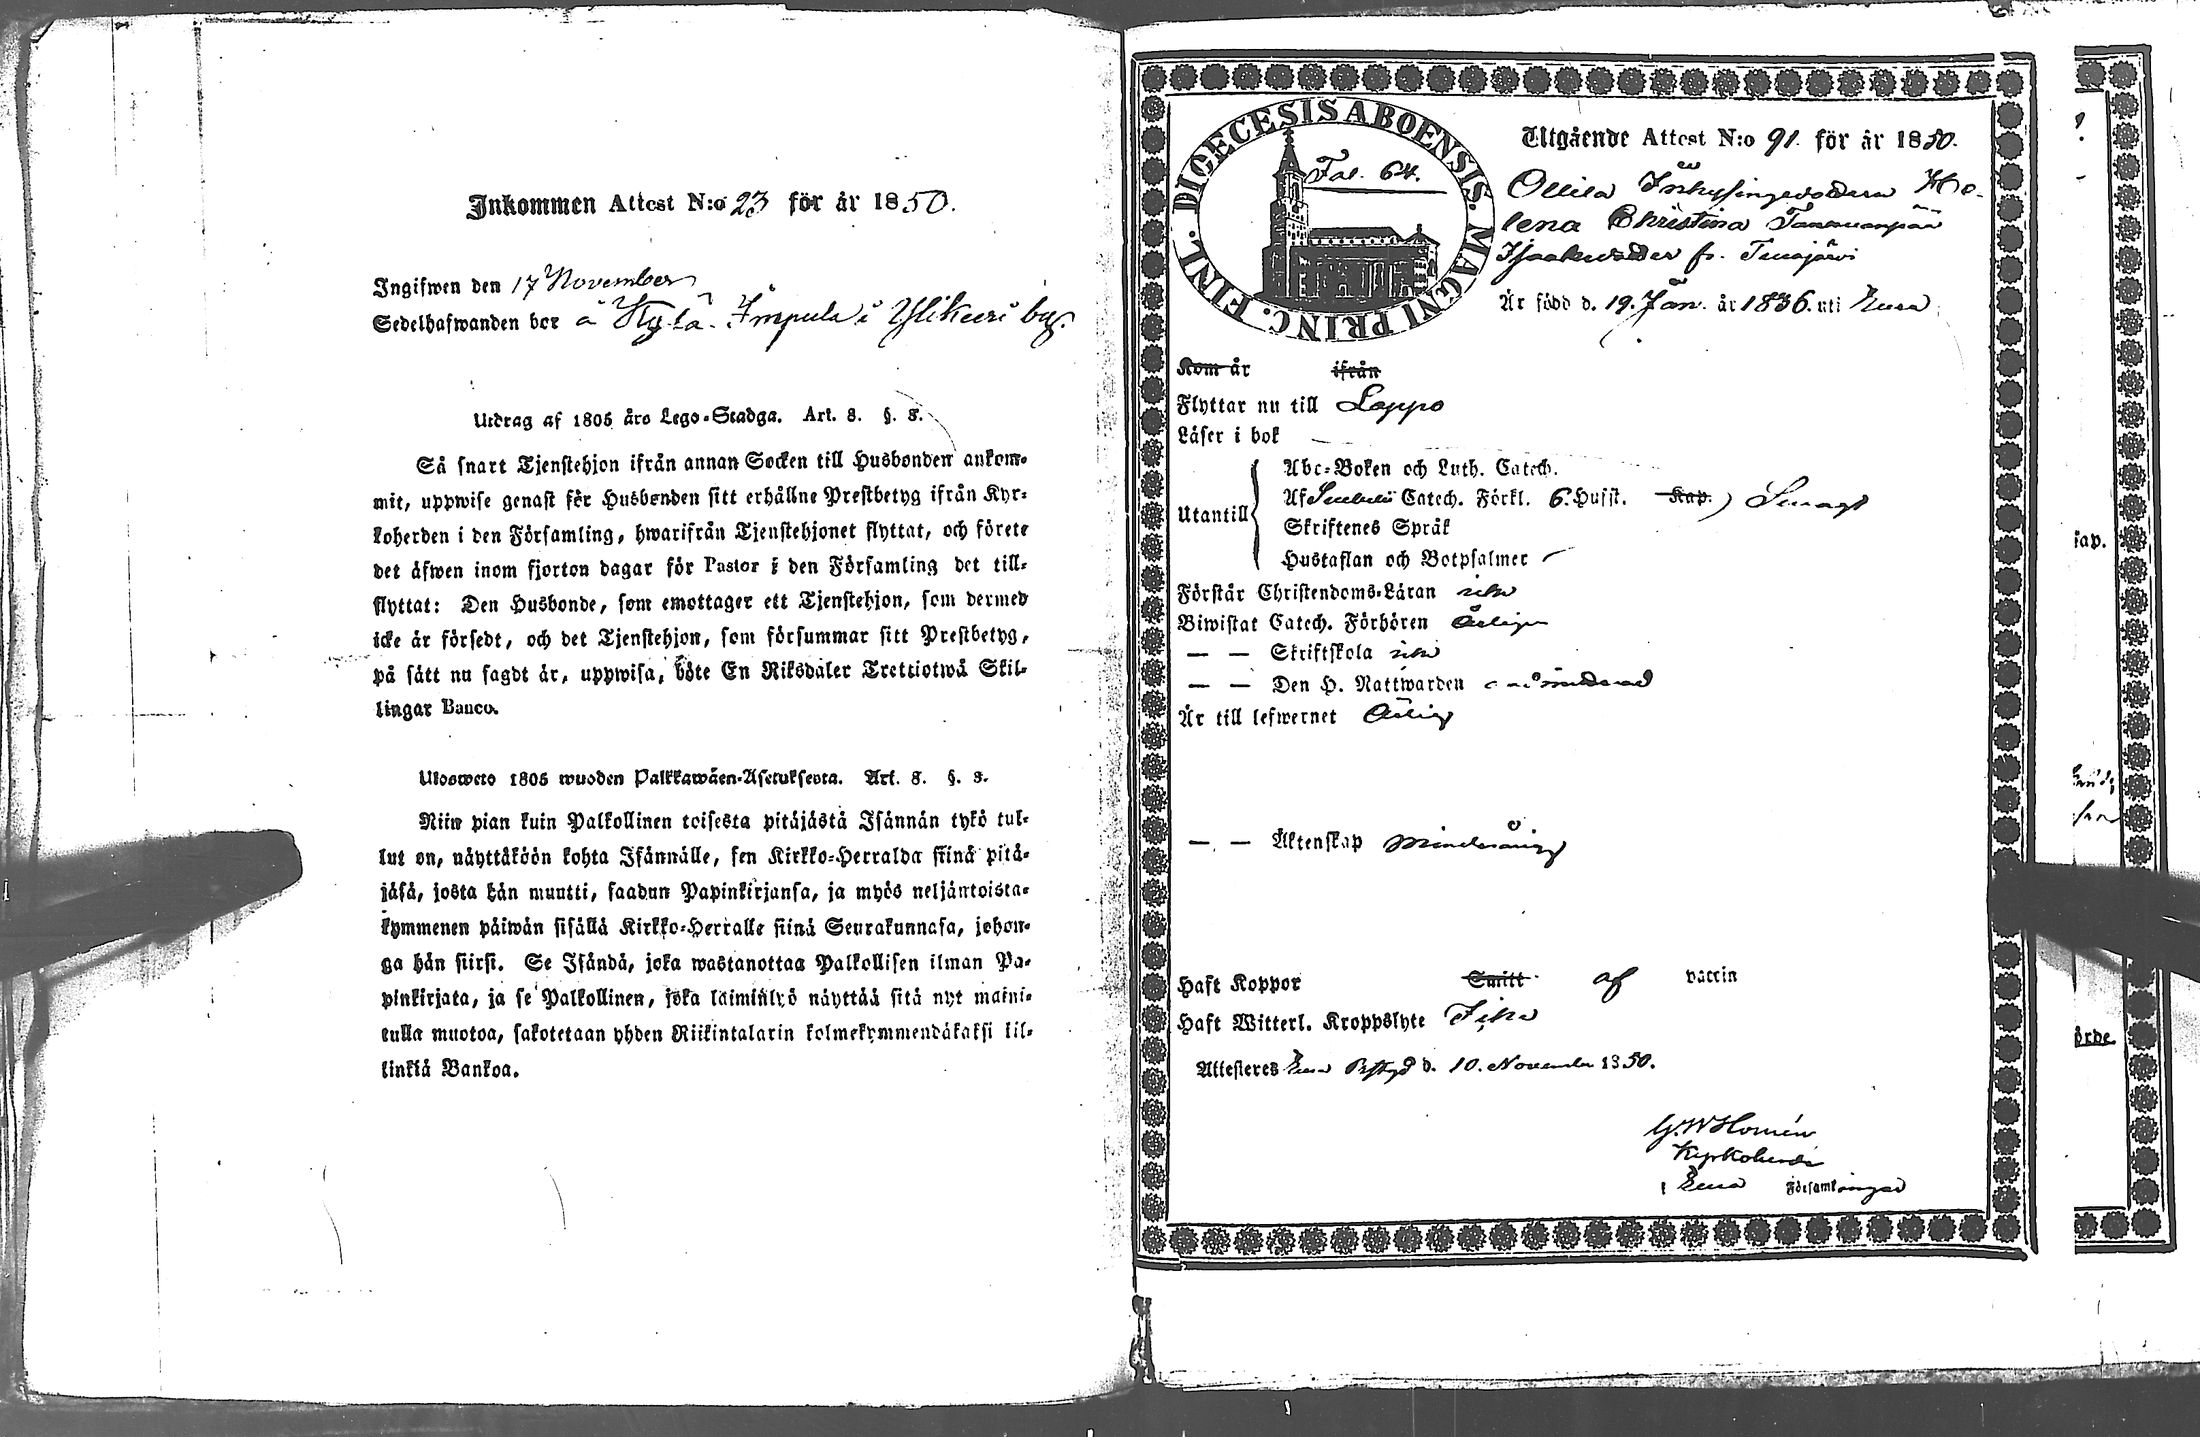 Inkommen Attest N:o 23 för år 1850.
Ingifwen den 17 November
Sedelhafwanden bor å Kylä-Impula i Ylikieri by.
Utdrag af 1805 års Lego-Stadga. Art. 8. §. 8.
Så snart Tjenstehjon ifrån annan Socken till Husbonden ankom-
mit, uppwise genast för Husbonden sitt erhållne Prestbetyg ifrån Kyr-
koherden i den Församling, hwarifrån Tjenstehjonet flyttat, och förete
det äfwen inom fjorton dagar för Pastor i den Församling det till-
flyttat: Den Husbonde, som emottager ett Tjenstehjon, som dermed
icke är försedt, och det Tjenstehjon, som försummar sitt Prestbetyg,
på sätt nu sagdt är, uppwisa, böte En Riksdaler Trettiotwå Skil-
lingar Banco.
Ulosweto 1805 wuoden Palkkawäen-Asetuksesta. Art. 8. §. 8.
Niin pian kuin Palkollinen toisesta pitäjästä Isännän tykö tul-
lut on, näyttäköön kohta Isännälle, sen Kirkko-Herralda siinä pitä-
jäsä, josta hän muutti, saadun Papinkirjansa, ja myös neljäntoista-
kymmenen päiwän sisällä Kirkko-Herralle siinä Seurakunnasa, johon-
ga hän siirsi. Se Isändä, joka wastanottaa Palkollisen ilman Pa-
pinkirjata, ja se Palkollinen, joka laiminlyö näyttää sitä nyt maini-
tulla muotoa, sakotetaan yhden Riikintalarin kolmekymmendäkaksi kil-
linkiä Bankoa.
DIOECESIS ABOENSIS. MAGNI PRINC. FINL.
Fol. 64.
Utgående Attest N:o 91. för år 1850.
Ollila Inhysingedottern He-
lena Christina
Isaksdotter fr.
Är född d. 19. Jan. år 1836. uti Eura
Kom år ifrån
Flyttar nu till Lappo
Läser i bok
Utantill
Abc-Boken och Luth. Catech.
Af Svebelii Catech. Förkl. 6. Husst. Kap. Svagt
Skriftenes Språk
Hustaflan och Botpsalmer
Förstår Christendoms-Läran icke
Biwistat Catech. Förhören Årligen
— — Skriftskola icke
— — Den H. Nattwarden oadmitterad
Är till lefwernet Ärlig
— — Äktenskap Minderårig
Haft Koppor Smitt af vaccin
Haft Witterl. Kroppslyte Icke
Attesteres Eura Prestgd d. 10. November 1850.
G. W Homén
Kyrkoherde
i Eura Församlingar
ap.
örde.